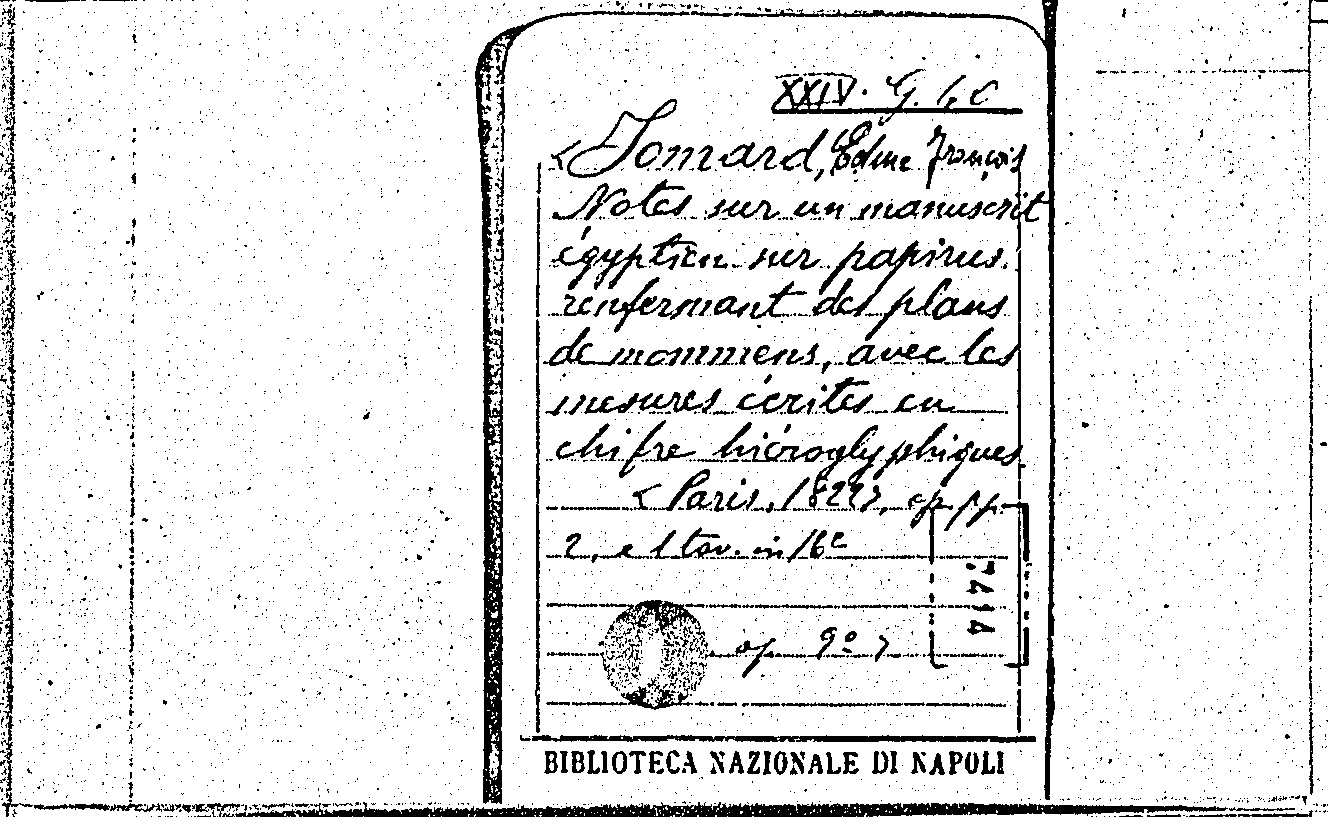 XXIV. G. 4, C
< Jomard, Edme François
Notes sur un manuscrit
égyptien sur papirus
renfermant des plans
de mommens, avec les
mesures écrites en
chifre hiéroglyphiques
< Paris, 1822>, op. pp.
2, e 1 tav. in 16º
7414
op. 9º >
BIBLIOTECA NAZIONALE DI NAPOLI